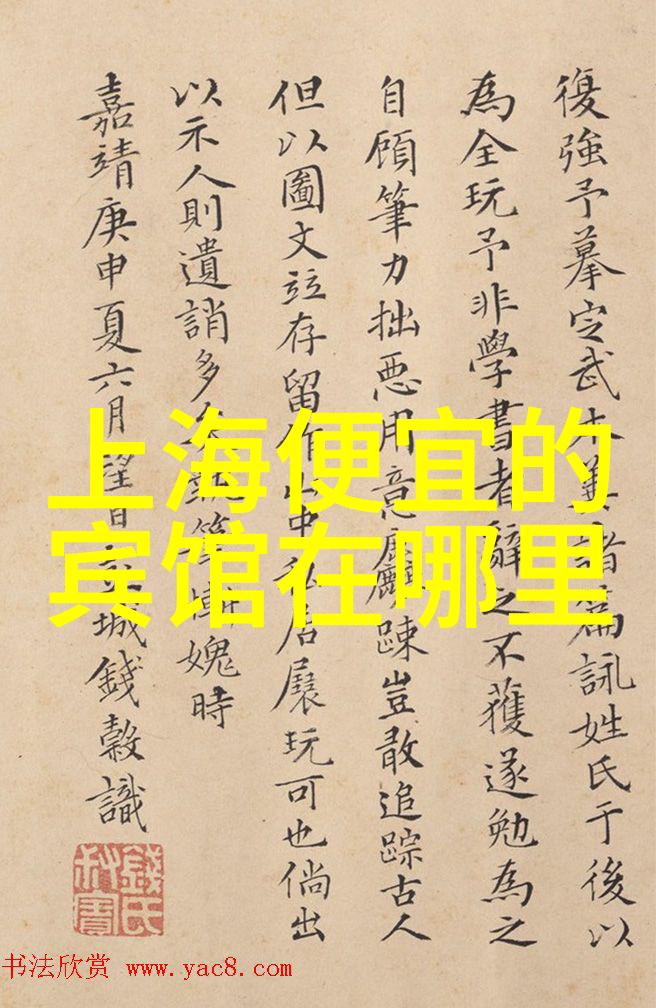 復強予摹定武本
諸篇詠姓氏于後以
為全玩予非學書者辭之不獲遂勉為之
自顧筆力拙惡用意麤踈豈敢追踪古人
但以圖文竝存留作山中私居展玩可也倘出
以示人則遺誚多矣
愧時
嘉靖庚申夏六月望
城錢榖識
上海便宜的
宾馆在哪里
錢氏
书法欣赏 www.yac8.com